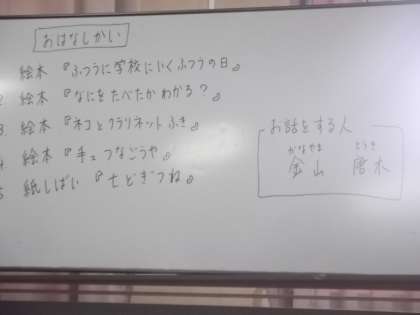 おはなしかい
絵本『ふつうに学校にいくふつうの日』
2 絵本『なにをたべたかわかる？』
3 絵本『ネコとクラリネットふき』
4 絵本『手をつなごうや』
5 紙しばい『七どぎつね』
お話をする人
かなやま とうき
金山 唐木